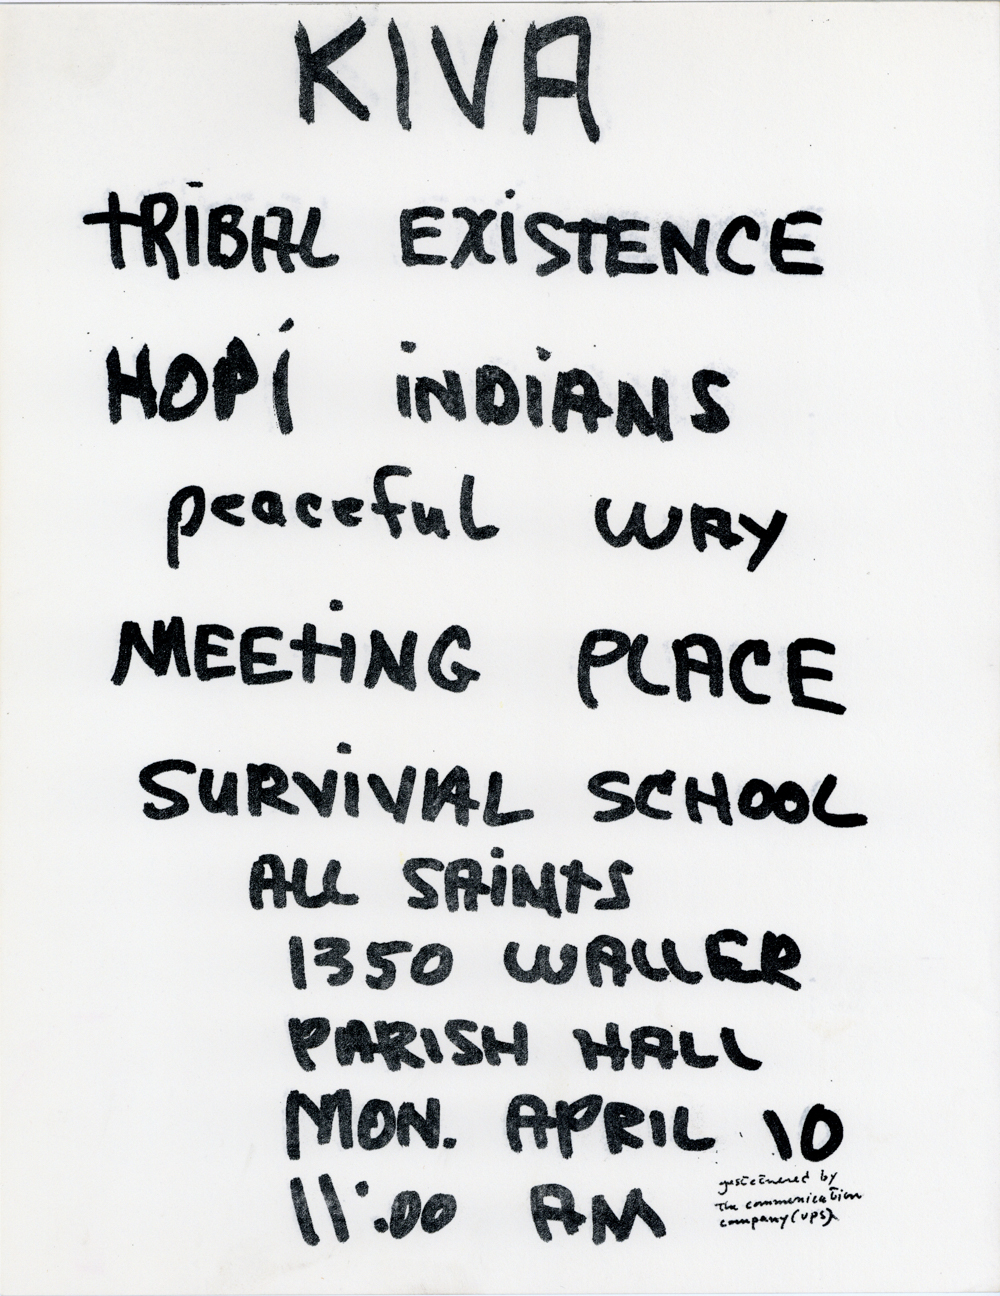 KIVA
tRiBAL EXiSTENCE
HOPi iNDiANS
peaceful WAY
MEEtiNG PLACE
SURViVAL SCHOOL
ALL SAiNtS
1350 WALLER
PARISH HALL
MON. APRIL 10
11:00 AM
gestetnered by
the communication
company (ups)